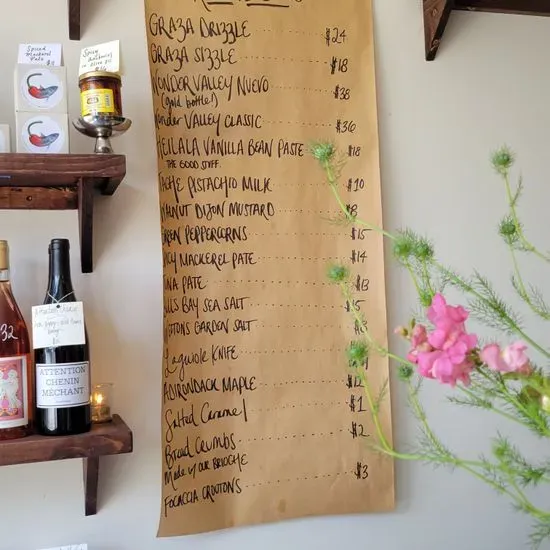 GRAZA DRIZZLE $24
GRAZA SIZZLE $18
WONDER VALLEY NUEVO $38
(gold bottle!)
Wonder VALLEY CLASSIC $36
HEILALA VANILLA BEAN PASTE $18
THE GOOD STUFF.
TACHE PISTACHIO MILK $10
WALNUT DIJON MUSTARD $8
GREEN PEPPERCORNS $15
SPICY MACKEREL PATE $14
TUNA PATE $13
SEA SALT
GARDEN SALT
Laguiole KNIFE
ADIRONDACK MAPLE
Salted Caramel $1
Bread Crumbs $2
Made w/ our BRIOCHE
FOCACCIA CROUTONS $3
Spiced
Mackerel
Pate
Spicy
32
ATTENTION
CHENIN
MÉCHANT